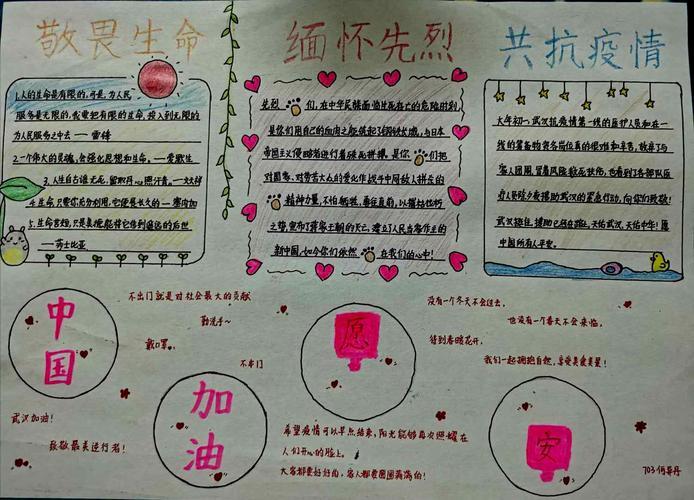 敬畏生命
缅怀先烈
共抗疫情
1.人的生命是有限的,可是,为人民
服务是无限的,我要把有限的生命,投入到无限的
为人民服务之中去——雷锋
2.一个伟大的灵魂,会强化思想和生命。——爱默生
3.人生自古谁无死,留取丹心照汗青。——文天祥
4.生命,只要你充分利用,它便是长久的——塞内加
5.生命苦短,只是美德能将它传到遥远的后世
——莎士比亚
先烈们,在中华民族面临生死存亡的危险时刻
是你们用自己的血肉之躯筑起了钢铁长城,与日本
帝国主义侵略者进行着殊死拼搏。是你们把
对国家、对劳苦大众的爱化作战斗中同敌人拼杀的
精神力量,不怕牺牲,勇往直前,以摧枯拉朽
之势,宣布了蒋家王朝的灭亡,建立了人民当家作主的
新中国,如今你们依然在我们的心中!
大年初一,武汉抗疫情第一线的医护人员和在一
线的筹备物资各岗位真的很难和辛苦,放弃了与
家人团圆,冒着风险救死扶伤,也看到了各部队医
疗人员除夕夜援助武汉的紧急行动,向你们致敬!
武汉挺住,援助已经在路上,天佑武汉,天佑中华!愿
中国所有人平安。
中国
不出门就是对社会最大的贡献
勤洗手~
戴口罩。
不串门
加油
武汉加油!
致敬最美逆行者!
愿
没有一个冬天不会过去,
也没有一个春天不会来临。
待到春暖花开,
我们一起拥抱自然,享受美景!
希望疫情可以早点结束,阳光能够再次照耀在
人们开心的脸上。
大家都要好好的,家人都要团团满满的!
安
703